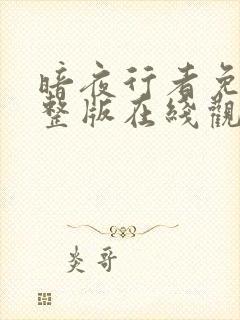 暗夜行者免
整版在綫觀
炎哥